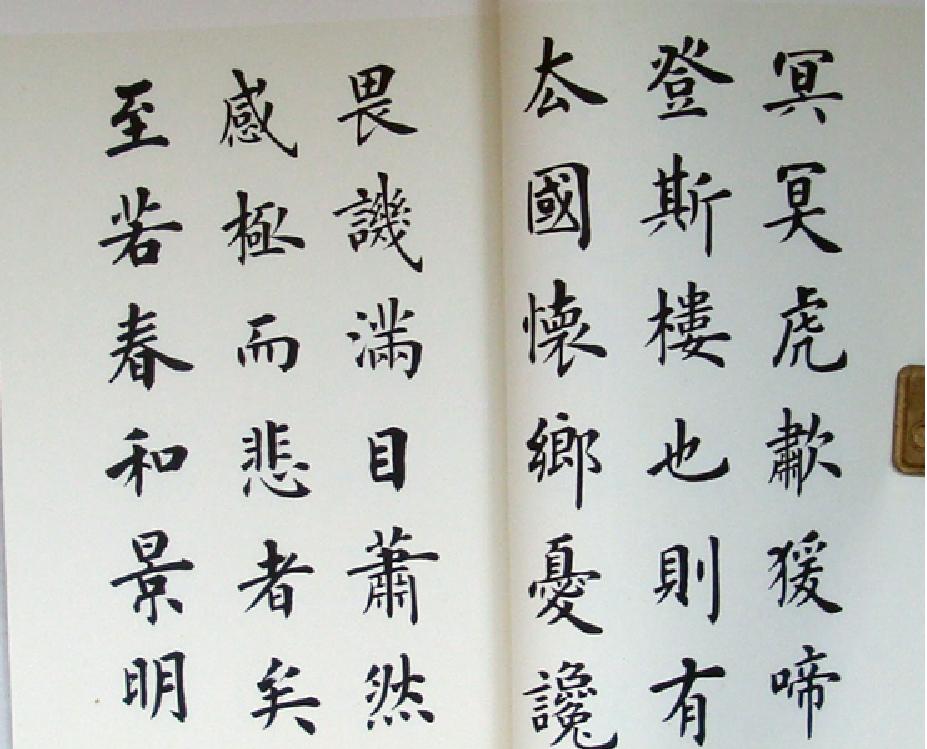 冥冥虎歗猨啼
登斯樓也則有
去國懷鄉憂讒
畏譏滿目蕭然
感極而悲者矣
至若春和景明